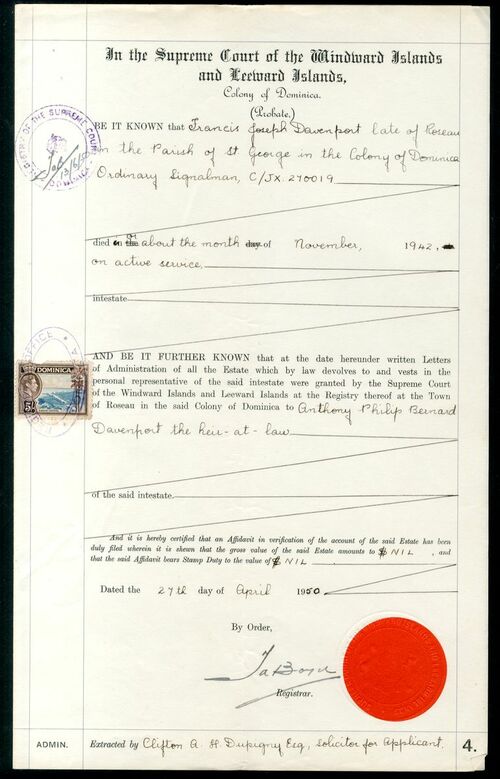 In the Supreme Court of the Windward Islands
and Leeward Islands,
Colony of Dominica.
(Probate.)
BE IT KNOWN that Francis Joseph Davenport late of Roseau
in the Parish of St George in the Colony of Dominica
Ordinary Signalman, C/JX. 270019
died on or about the month day of November, 1942,
on active service,
intestate
AND BE IT FURTHER KNOWN that at the date hereunder written Letters
of Administration of all the Estate which by law devolves to and vests in the
personal representative of the said intestate were granted by the Supreme Court
of the Windward Islands and Leeward Islands at the Registry thereof at the Town
of Roseau in the said Colony of Dominica to Anthony Philip Bernard
Davenport the heir-at-law
of the said intestate.
And it is hereby certified that an Affidavit in verification of the account of the said Estate has been
duly filed wherein it is shewn that the gross value of the said Estate amounts to $ NIL , and
that the said Affidavit bears Stamp Duty to the value of £ NIL
Dated the 27th day of April 1950
By Order,
Registrar.
ADMIN. Extracted by Clifton A. H. Dupigny Esq, solicitor for Applicant. 4.
REGISTRY OF THE SUPREME COURT
DOMINICA
DOMINICA
5/-